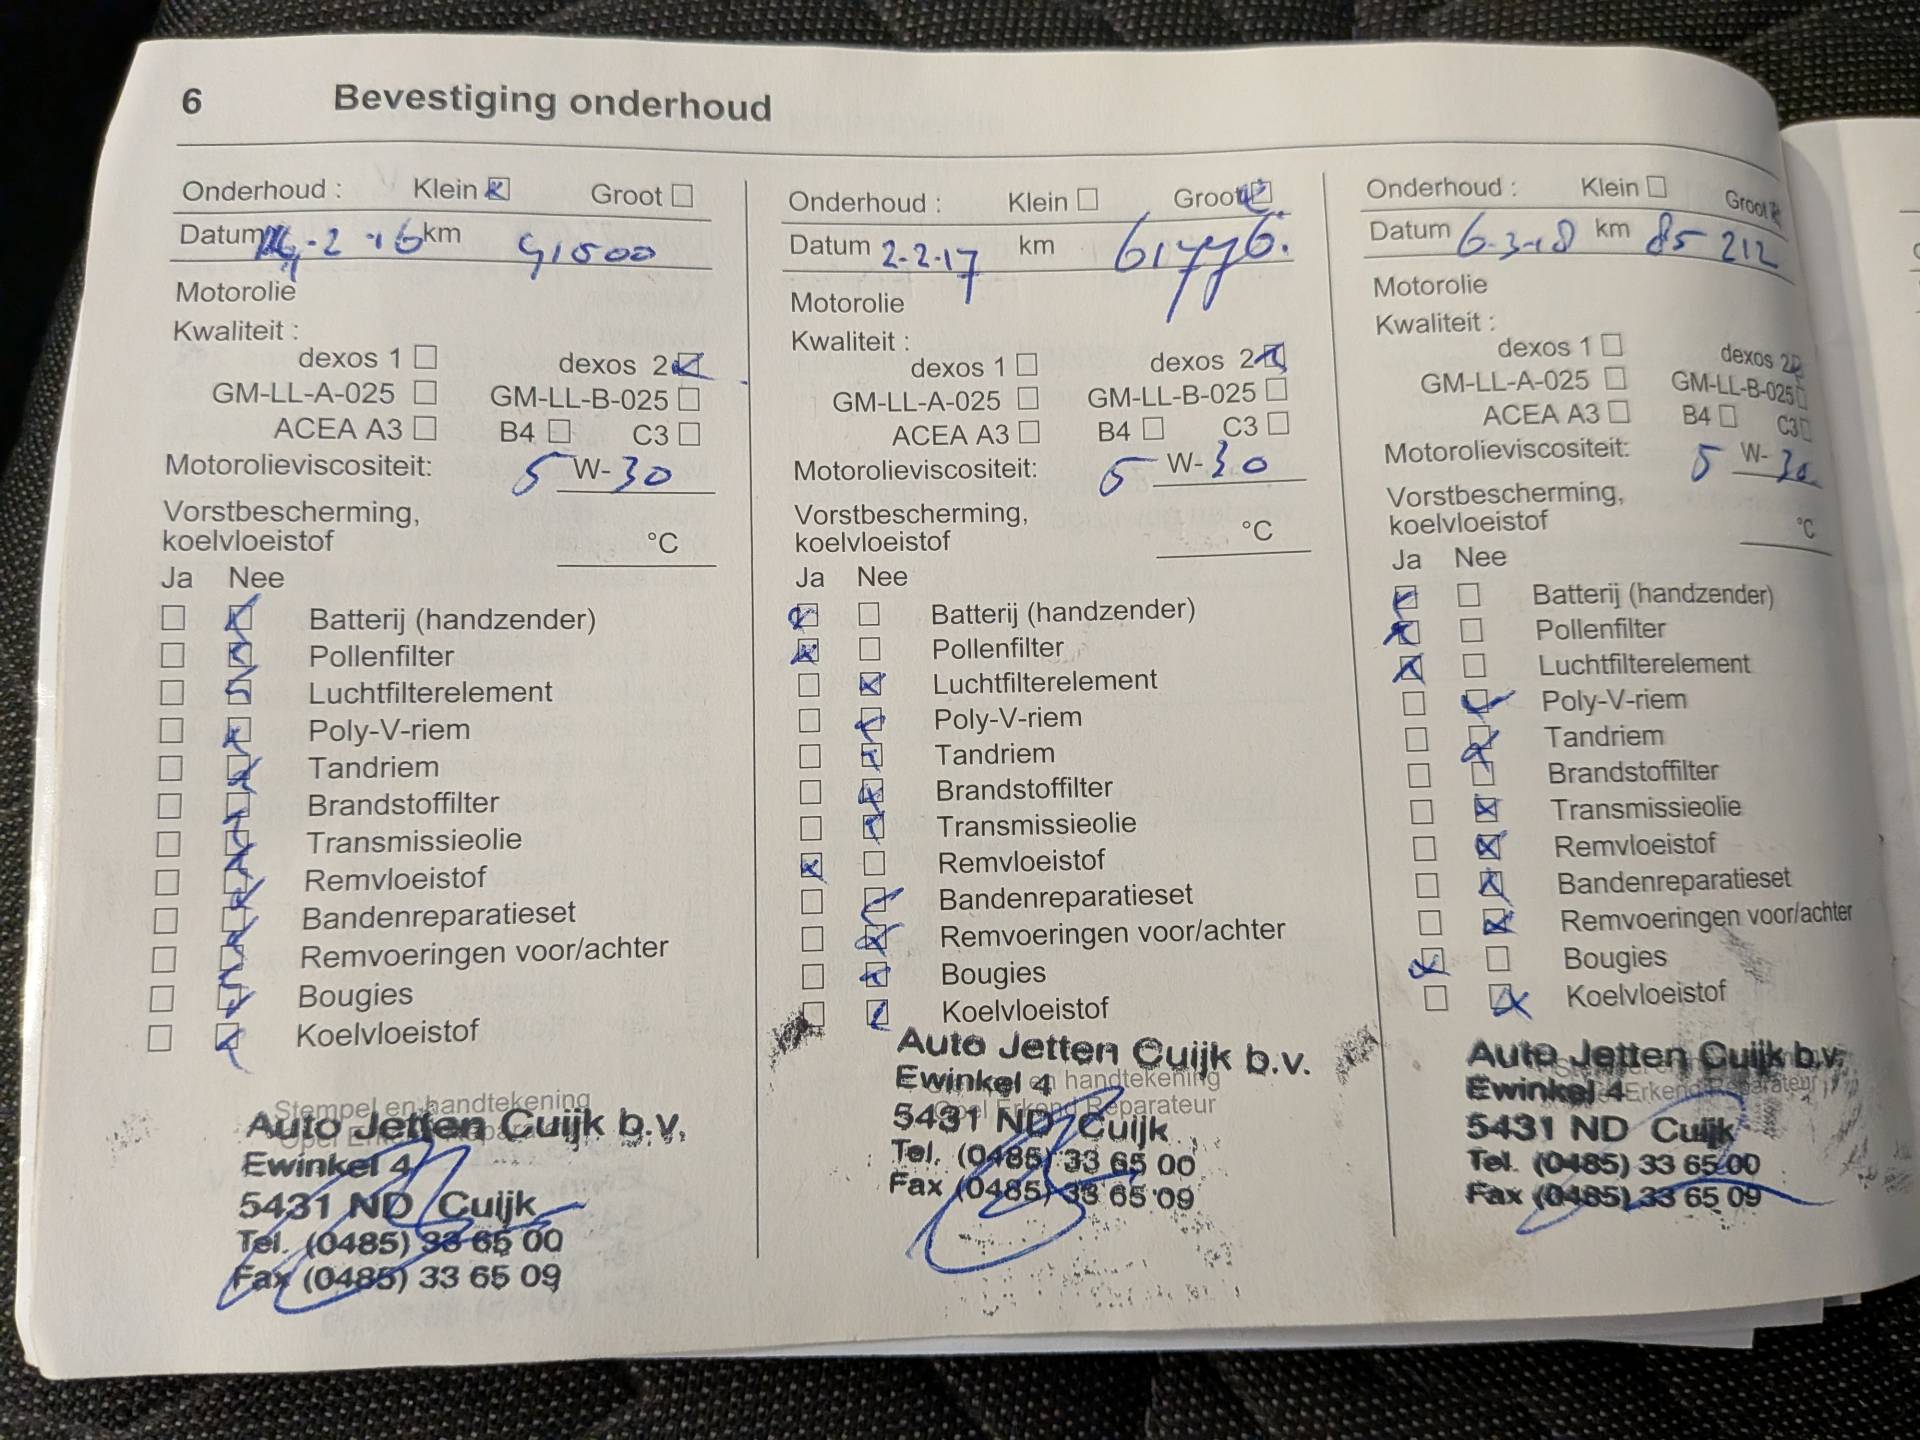 6 Bevestiging onderhoud
Onderhoud : Klein Groot
Datum -2-16 km 41500
Motorolie
Kwaliteit :
dexos 1 dexos 2
GM-LL-A-025 GM-LL-B-025
ACEA A3 B4 C3
Motorolieviscositeit: 5 W-30
Vorstbescherming,
koelvloeistof °C
Ja Nee
Batterij (handzender)
Pollenfilter
Luchtfilterelement
Poly-V-riem
Tandriem
Brandstoffilter
Transmissieolie
Remvloeistof
Bandenreparatieset
Remvoeringen voor/achter
Bougies
Koelvloeistof
Stempel en handtekening
Auto Jetten Cuijk b.v.
Ewinkel 4
5431 ND Cuijk
Tel. (0485) 33 65 00
Fax (0485) 33 65 09
Onderhoud : Klein Groot
Datum 2-2-17 km 61776.
Motorolie
Kwaliteit :
dexos 1 dexos 2
GM-LL-A-025 GM-LL-B-025
ACEA A3 B4 C3
Motorolieviscositeit: 5 W-30
Vorstbescherming,
koelvloeistof °C
Ja Nee
Batterij (handzender)
Pollenfilter
Luchtfilterelement
Poly-V-riem
Tandriem
Brandstoffilter
Transmissieolie
Remvloeistof
Bandenreparatieset
Remvoeringen voor/achter
Bougies
Koelvloeistof
Auto Jetten Cuijk b.v.
Ewinkel 4 en handtekening
Opel Erkend Reparateur
5431 ND Cuijk
Tel. (0485) 33 65 00
Fax (0485) 33 65 09
Onderhoud : Klein Groot
Datum 6-3-18 km 85 212
Motorolie
Kwaliteit :
dexos 1 dexos 2
GM-LL-A-025 GM-LL-B-025
ACEA A3 B4 C3
Motorolieviscositeit: 5 W-30
Vorstbescherming,
koelvloeistof °C
Ja Nee
Batterij (handzender)
Pollenfilter
Luchtfilterelement
Poly-V-riem
Tandriem
Brandstoffilter
Transmissieolie
Remvloeistof
Bandenreparatieset
Remvoeringen voor/achter
Bougies
Koelvloeistof
Auto Jetten Cuijk b.v.
Stempel en
Ewinkel 4 Erkend Reparateur
5431 ND Cuijk
Tel. (0485) 33 65 00
Fax (0485) 33 65 09